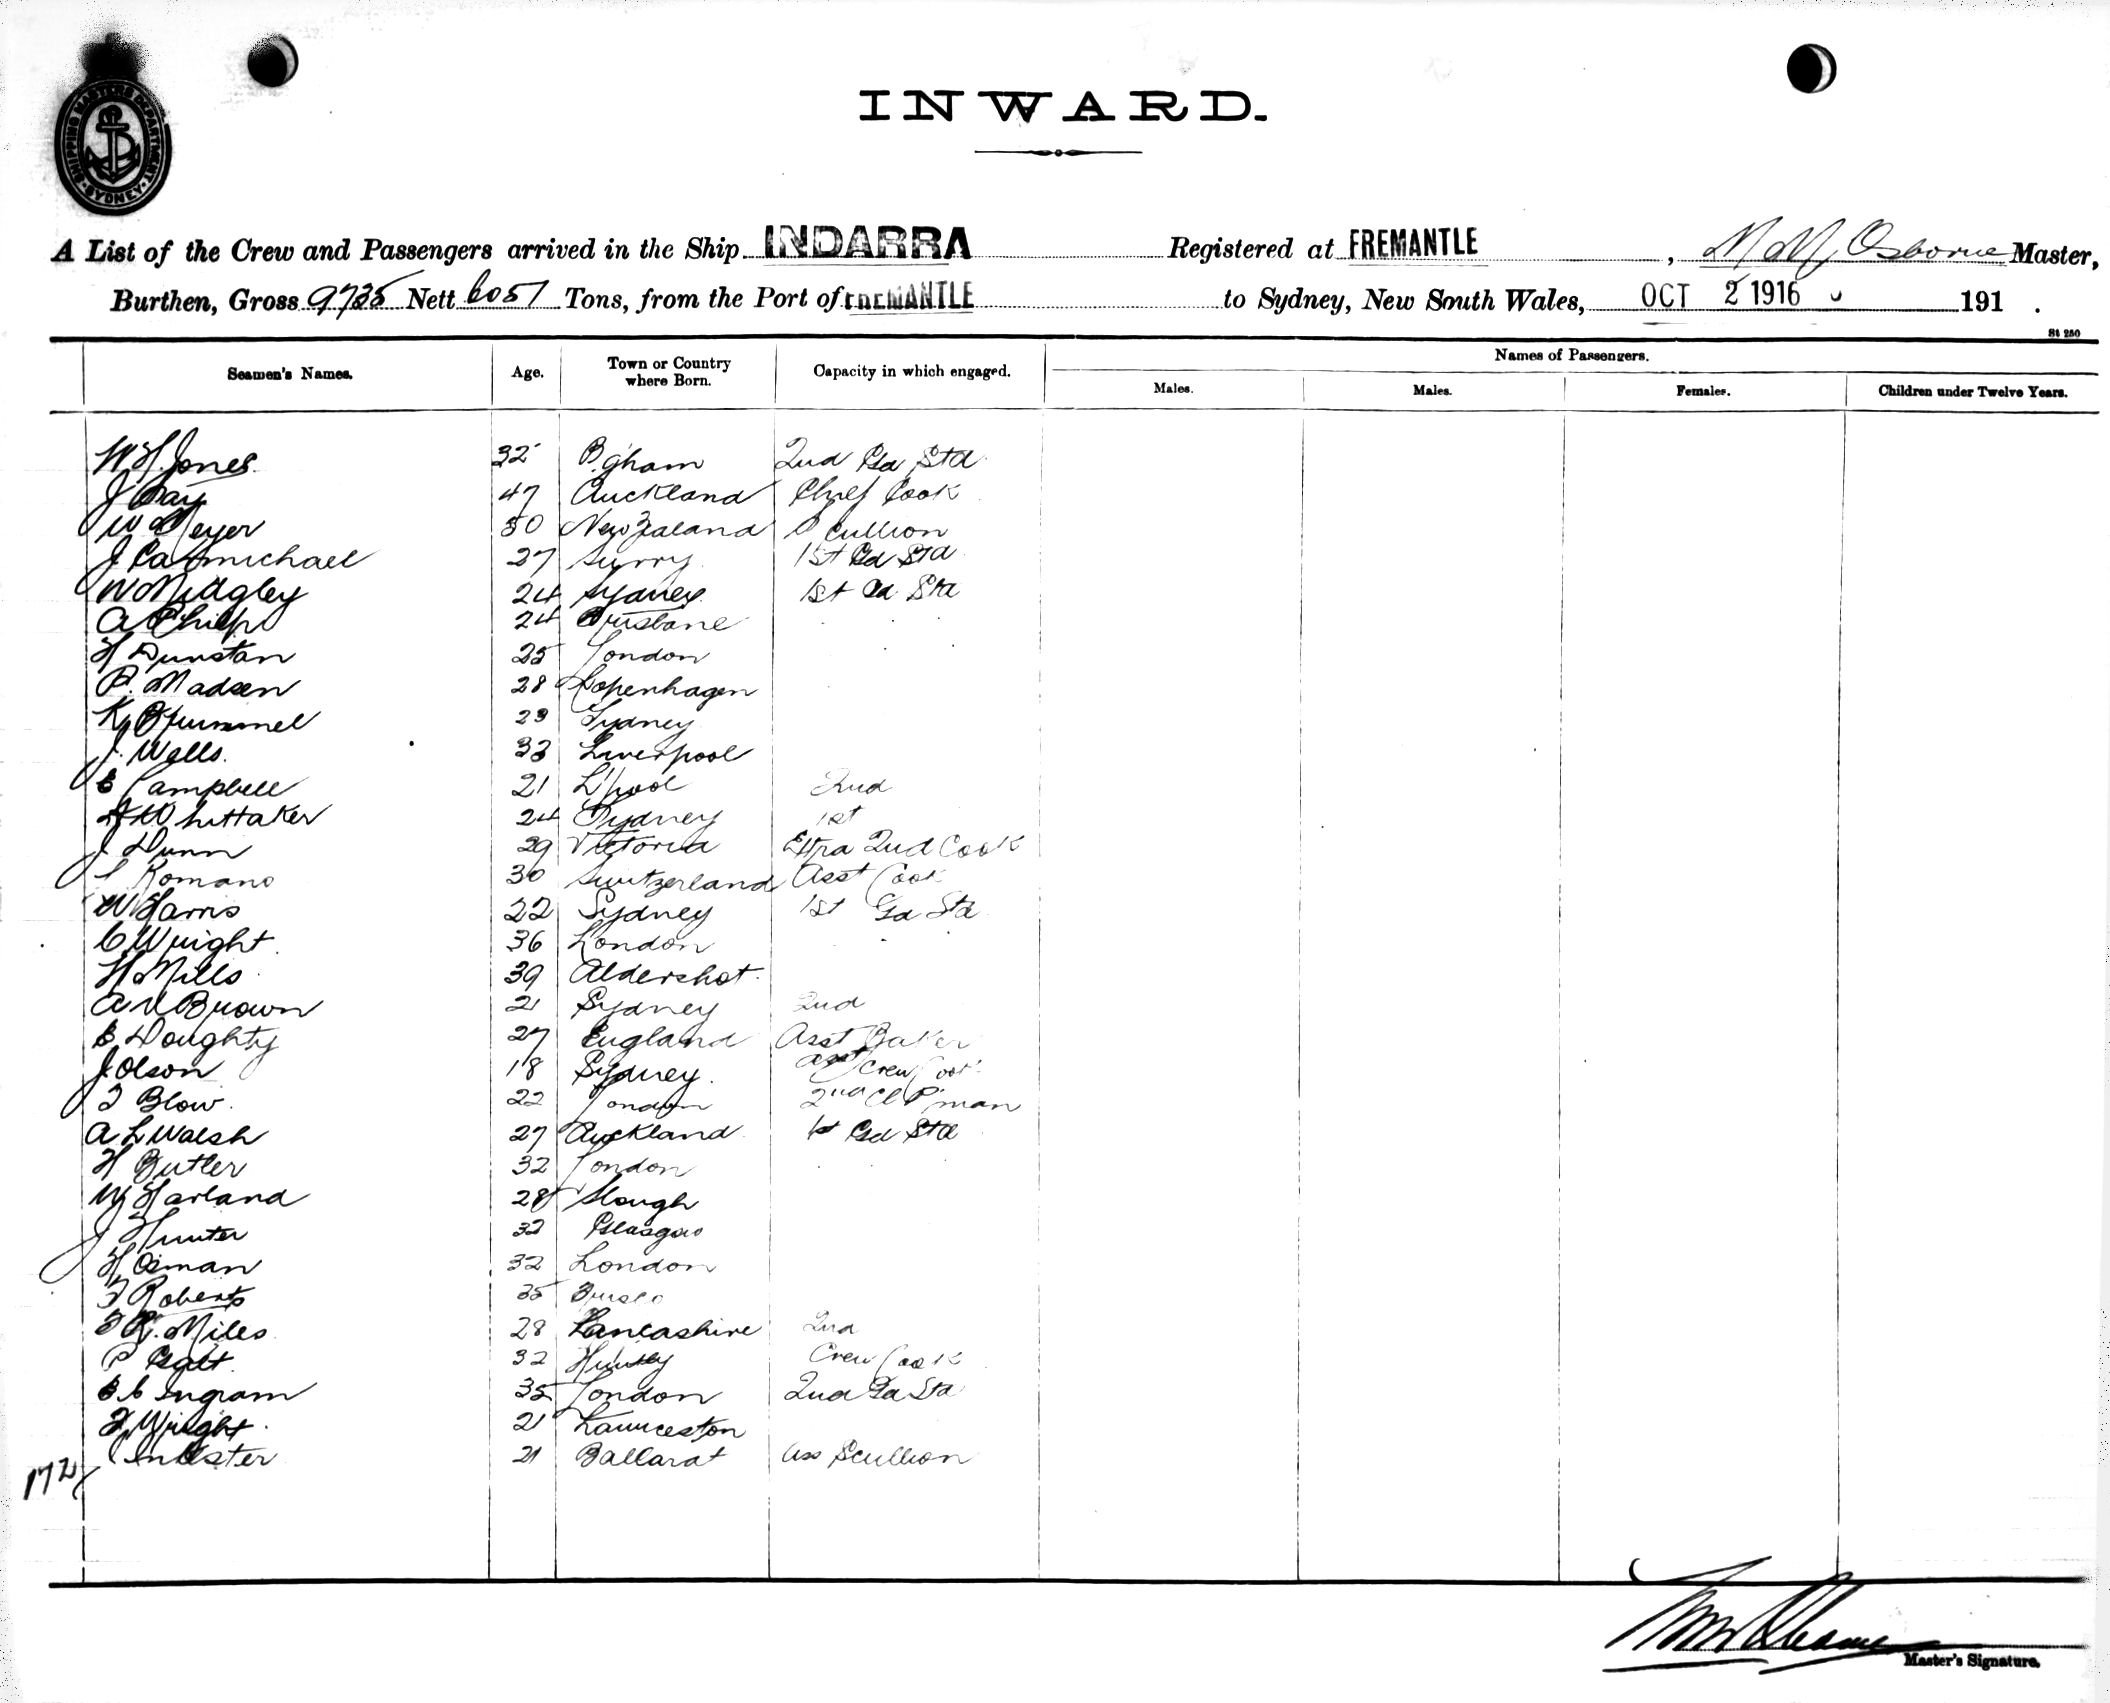 SHIPPING MASTERS DEPARTMENT
SYDNEY
INWARD.
A List of the Crew and Passengers arrived in the Ship INDARRA Registered at FREMANTLE, Osborne Master,
Burthen, Gross 9735 Nett 6051 Tons, from the Port of FREMANTLE to Sydney, New South Wales, OCT 2 1916 191 .
St 250
Seamen's Names. Age. Town or Country where Born. Capacity in which engaged. Names of Passengers.
Males. Males. Females. Children under Twelve Years.
W H Jones 32 B'gham 2nd Gd Std
J Gay 47 Auckland Chief Cook
W Meyer 50 New Zealand Scullion
J Carmichael 27 Surry 1st Gd Std
W Midgley 24 Sydney 1st Gd Std
A Philp 24 Brisbane
H Dunstan 25 London
P. Madsen 28 Copenhagen
K Brummel 23 Sydney
J. Wells. 33 Liverpool
E Campbell 21 L'pool 2nd
Whittaker 24 Sydney 1st
J Dunn 29 Victoria Extra 2nd Cook
Romano 30 Switzerland Asst Cook
W Harris 22 Sydney 1st Gd Std
C Wright 36 London
H Mills 39 Aldershot
A V Brown 21 Sydney 2nd
E Doughty 27 England Asst Baker
J. Olson 18 Sydney. Asst Crew Cook
T Blow. 22 London 2nd Cl P'man
A L Walsh 27 Auckland 1st Gd Std
H Butler 32 London
W Harland 28 Slough
J Hunter 32 Glasgow
H Osman 32 London
T Roberts 35
T R. Miles 28 Lancashire 2nd
P Galt 32 Huntly Crew Cook
E C Ingram 35 London 2nd Gd Std
T. Wright. 21 Launceston
Inkster 21 Ballarat Ass Scullion
172
Master's Signature.